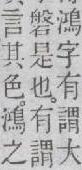 鴻字有謂大
磐是也。有謂
言其色。鴻之